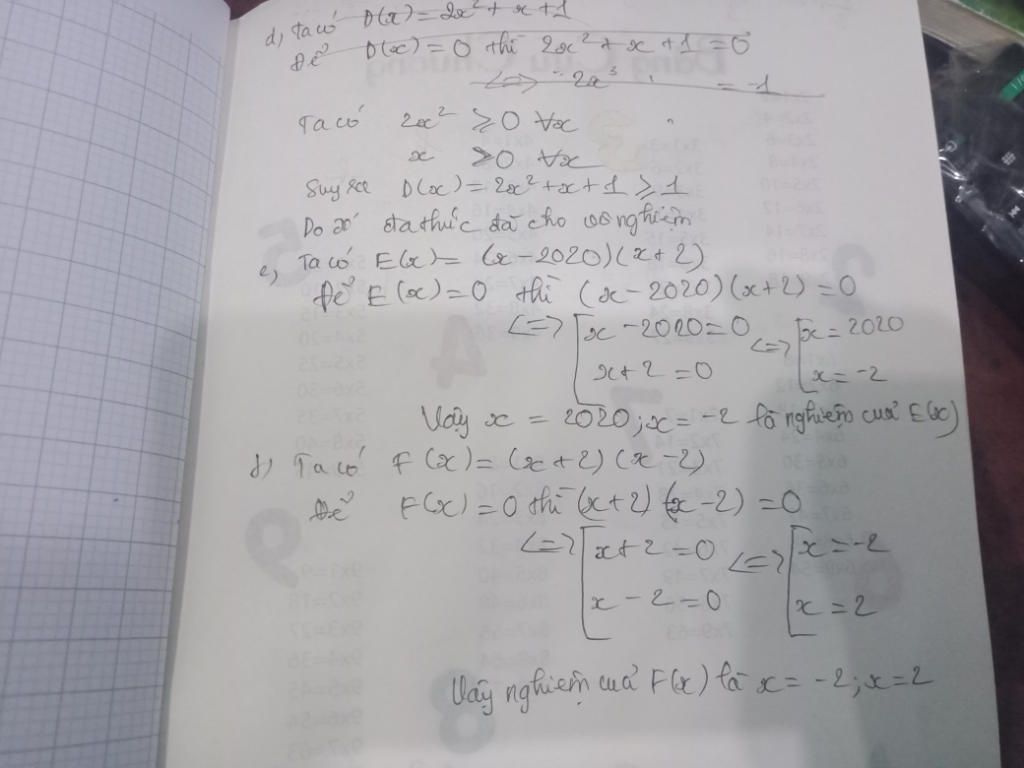 d) Ta có D(x) = 2x² + x + 1
Để D(x) = 0 thì 2x² + x + 1 = 0
<=> 2x³ = -1
Ta có 2x² ⩾ 0 ∀x
x ⩾ 0 ∀x
Suy ra D(x) = 2x² + x + 1 ⩾ 1
Do đó đa thức đã cho vô nghiệm
e) Ta có E(x) = (x - 2020)(x + 2)
Để E(x) = 0 thì (x - 2020)(x + 2) = 0
<=> [x - 2020 = 0 <=> [x = 2020
x + 2 = 0 x = -2
Vậy x = 2020; x = -2 là nghiệm của E(x)
f) Ta có F(x) = (x + 2)(x - 2)
Để F(x) = 0 thì (x + 2)(x - 2) = 0
<=> [x + 2 = 0 <=> [x = -2
x - 2 = 0 x = 2
Vậy nghiệm của F(x) là x = -2; x = 2